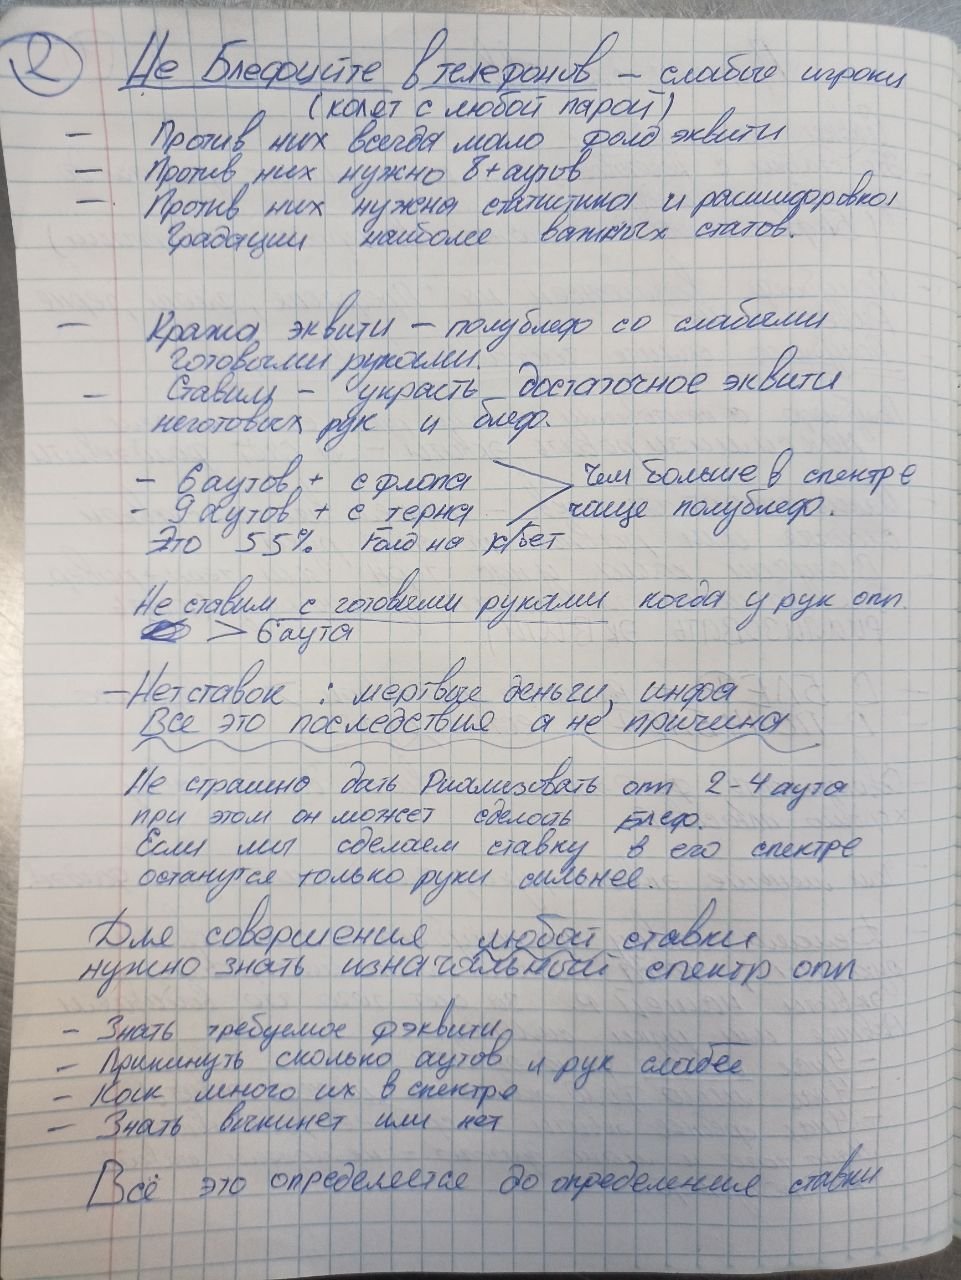 2 Не Блефуйте в телефонов – слабые игроки
(колят с любой парой)
– Против них всегда мало фолд эквити
– Против них нужно 8+аутов
– Против них нужна статистика и расшифровка
градации наиболее важных статов.
– Кража эквити – полублеф со слабыми
готовыми руками.
– Ставим – украсть достаточное эквити
неготовых рук и блеф.
– 6 аутов + с флопа
Чем больше в спектре
– 9 аутов + с терна
чаще полублеф.
Это 55% Голд на к/бет
Не ставим с готовыми руками когда у рук опп.
> 6 аута
– Нет ставок : мертвые деньги, инфа
Все это последствия а не причина
Не страшно дать Риализовать опп 2-4 аута
при этом он может сделать Блеф.
Если мы сделаем ставку в его спектре
останутся только руки сильнее.
Для совершения любой ставки
нужно знать изначальный спектр опп
– Знать требуемое фэквити
– Прикинуть сколько аутов и рук слабее
– Как много их в спектре
– Знать выкинет или нет
Всё это определяется до определения ставки